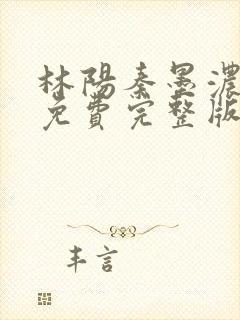 林陽秦墨濃
免費完整版
丰言